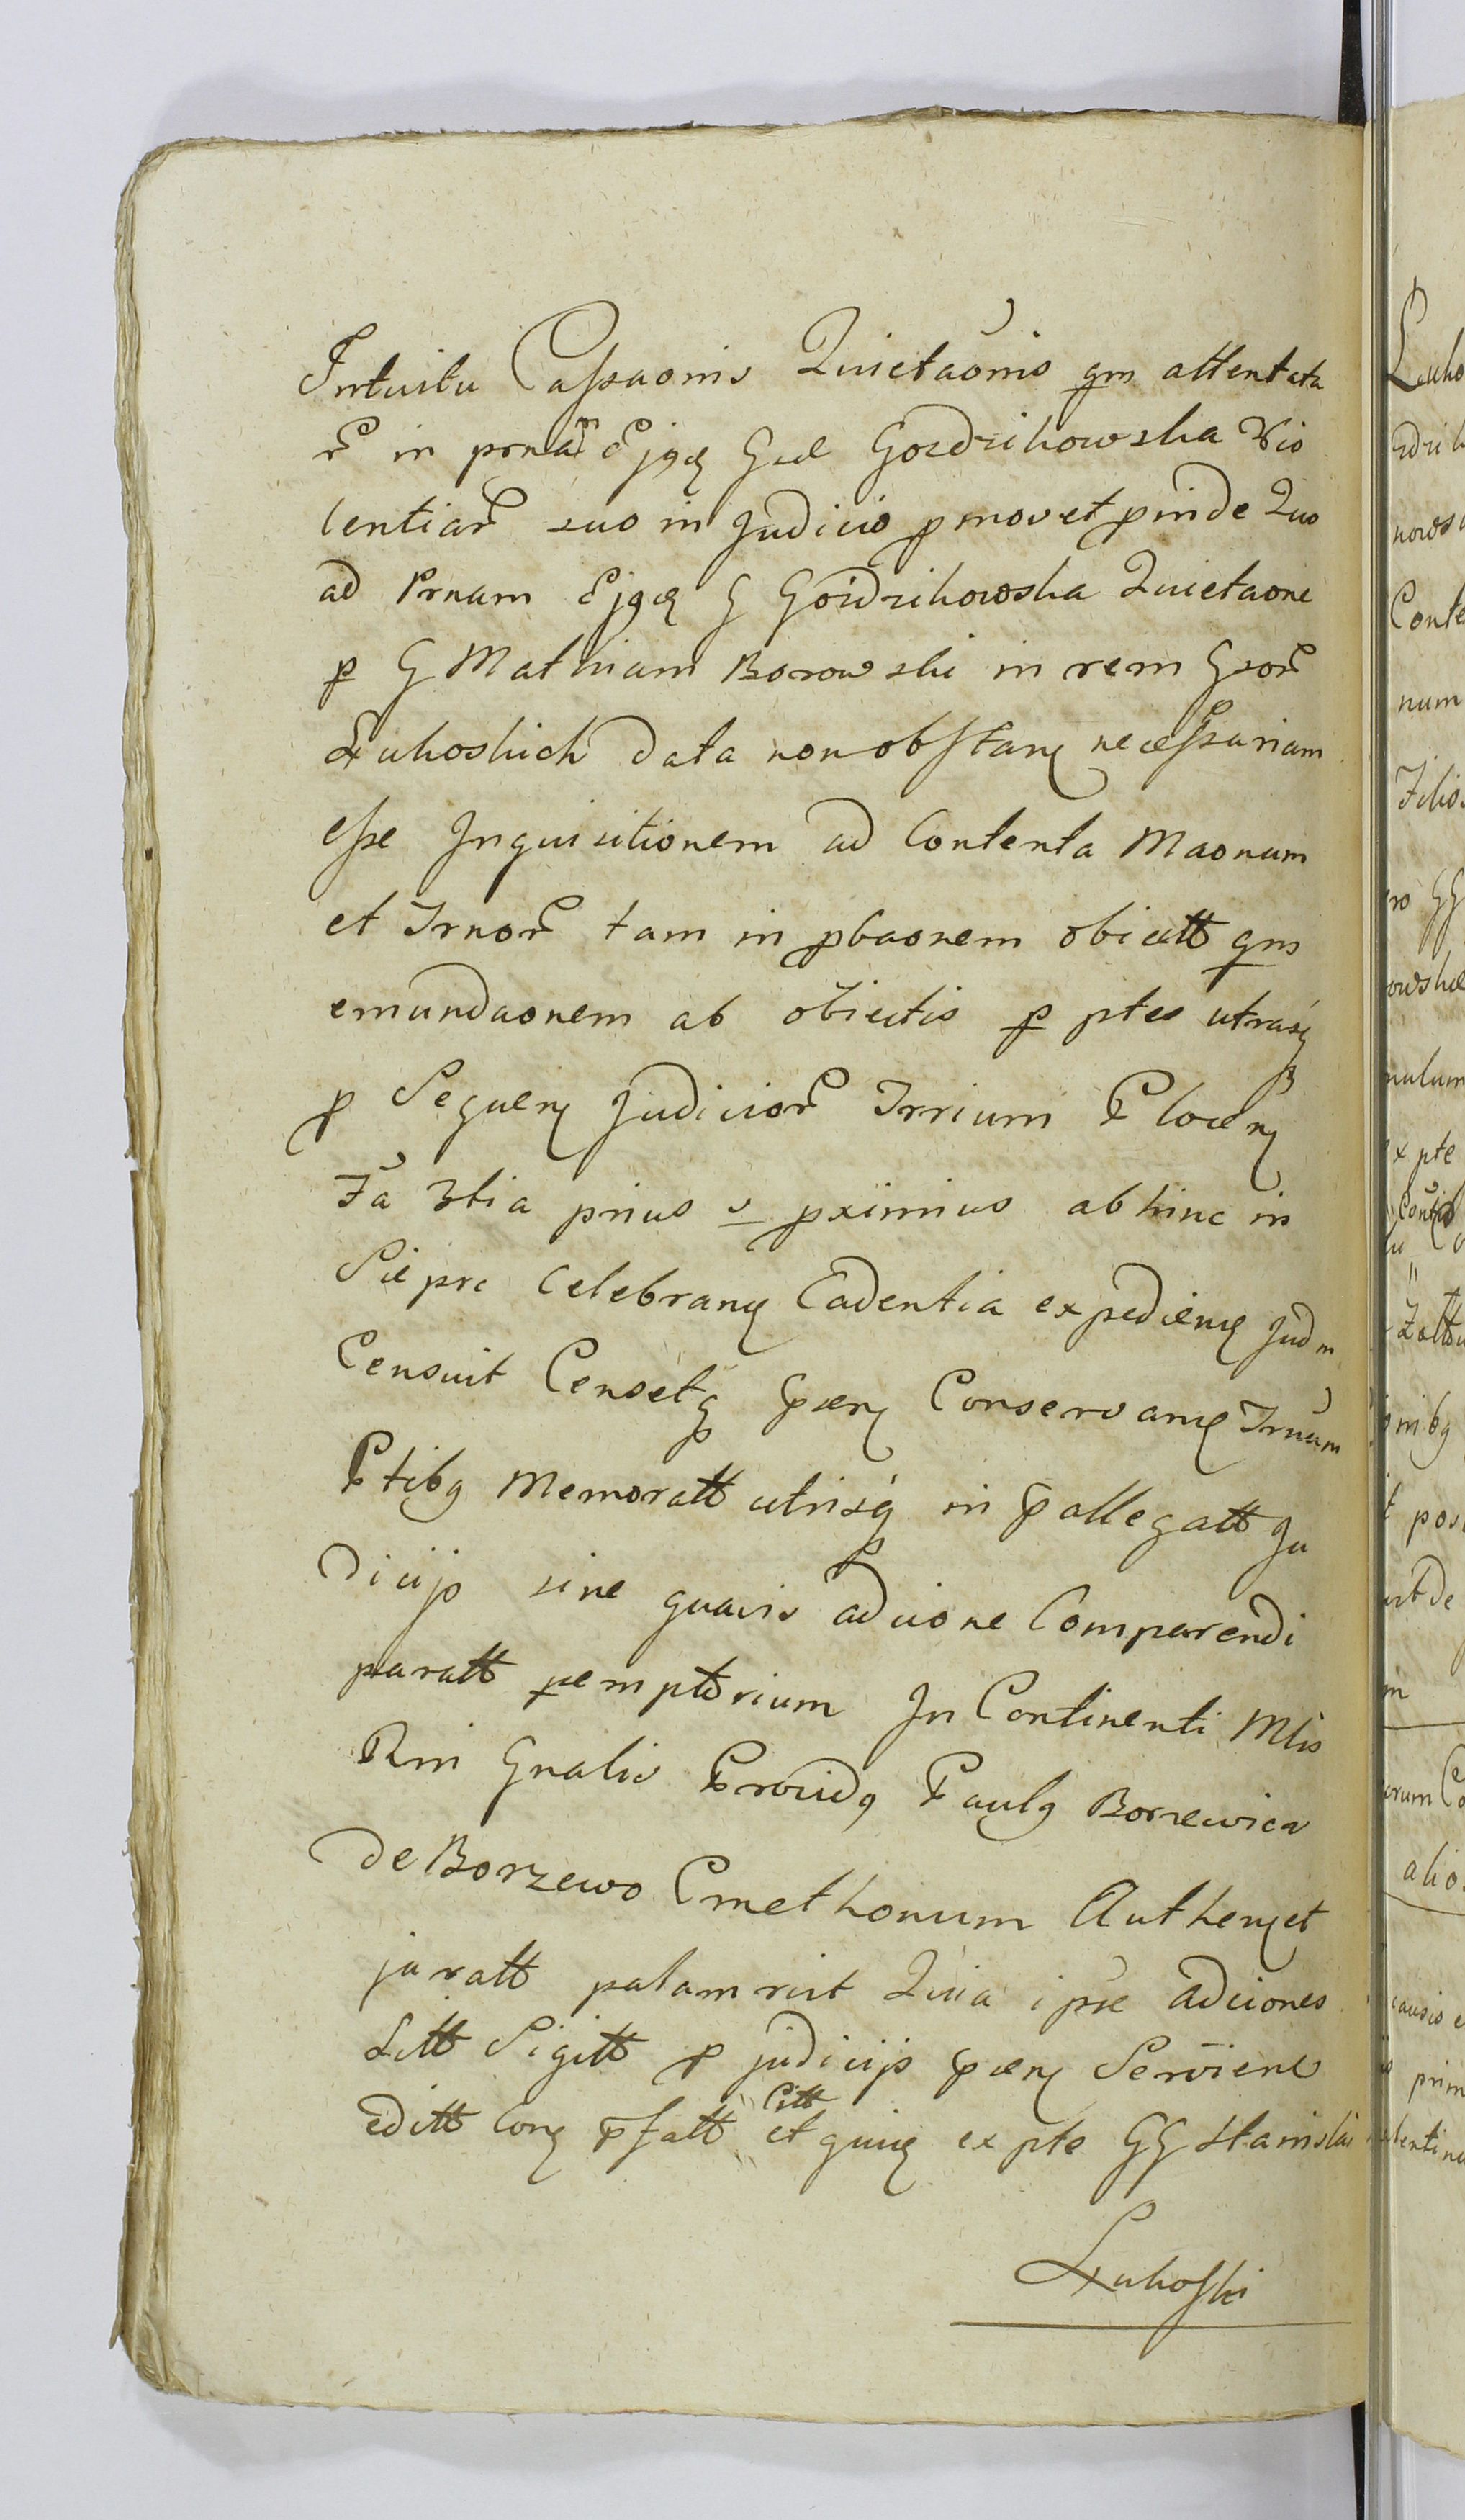 Intuitu Cassaonis Quietaonis qm attentata
r in prnam Ejqe Gsae Gozdzikowska Vio
lentiar suo in Judicio pmovet pinde Quo
ad Prnam Ejqe G Gozdzikowska Quietaone
p G Mathiam Borowski in rem Gsor
Łukoskich data non obstan necessariam
esse Inquisitionem ad Contenta Maonum
et Trnor tam in pbaonem obiectt qm
emundaonem ab obiectis p ptes utrasq
p Sequen Judicior Trrium Plocen
Fa 3tia prius v pximius abhinc in
Sieprc Celebran Cadentia expedien Judm
Censuit Censetq psen Conservan Trnum
Ptibq Memoratt utrisq in pallegatt Ju
dicijs sine quavis adcione Comparendi
paratt pemptorium In Continenti Mlis
Rni Gnalis Providq Paulq Borzewica
de Borzewo Cmethonum Authen et
juratt palam rcit Quia ipse adciones
Litt Sigitt p judicijs psen Serviene
editt Con pfatt Citt et quin ex pte GG Stanislai
Łukoski
Luko
zdzik
nows
Conte
num
Filio
ro GG
owskae
nulum
ex pte
Zatto
inibq
t pos
orum Co
alio
causis e
prim
lentine